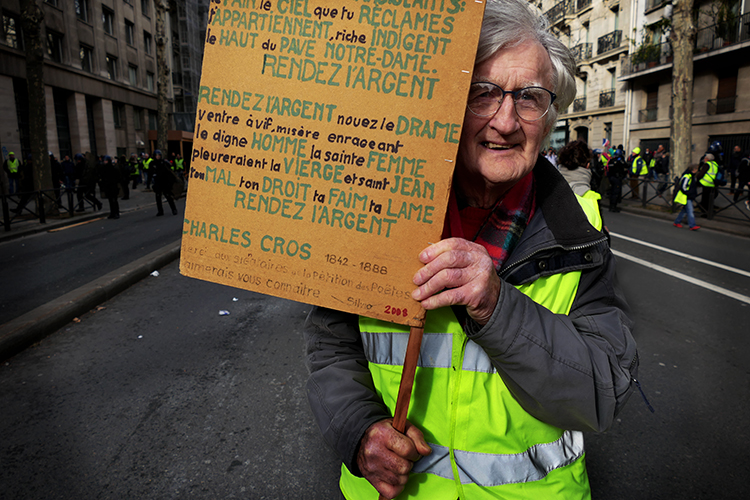 le CIEL que tu RÉCLAMES
t'APPARTIENNENT, riche INDIGENT
le HAUT du PAVÉ NOTRE-DAME.
RENDEZ l'ARGENT
RENDEZ l'ARGENT nouez le DRAME
ventre à vif, misère enrageant
le digne HOMME la sainte FEMME
pleureraient la VIERGE et saint JEAN
ton MAL ton DROIT ta FAIM ta LAME
RENDEZ l'ARGENT
CHARLES CROS 1842-1888
aux signataires de la pétition des Poètes
aimerais vous connaître - 2008